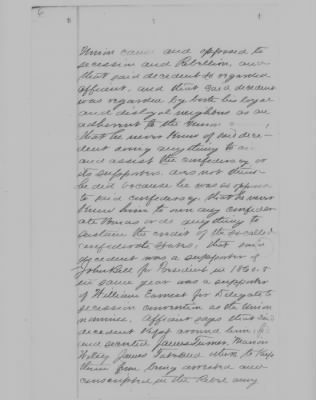 6
Union cause and opposed to
secession and Rebellion, and
that said decedent so regarded
affiant, and that said decedent
was regarded by both his loyal
and disloyal neighbors as an
adherent to the Union
that he never knew of said dece-
dent doing anything to aid
and assist the confederacy or
its supporters. does not think
he did because he was so opposed
to said confederacy that he never
knew him to own any confeder-
ate Bonds or do anything to
sustain the credit of the so called
confederate States; that said
decedent was a supporter of
John Bell for President in 1860 &
in same year was a supporter
of William Earnest for Delegate to
secession convention as the Union
nominee. Affiant says that said
decedent kept around him,
and secreted James Turner, Marion
James while to keep
them from being arrested and
conscripted in the Rebel army